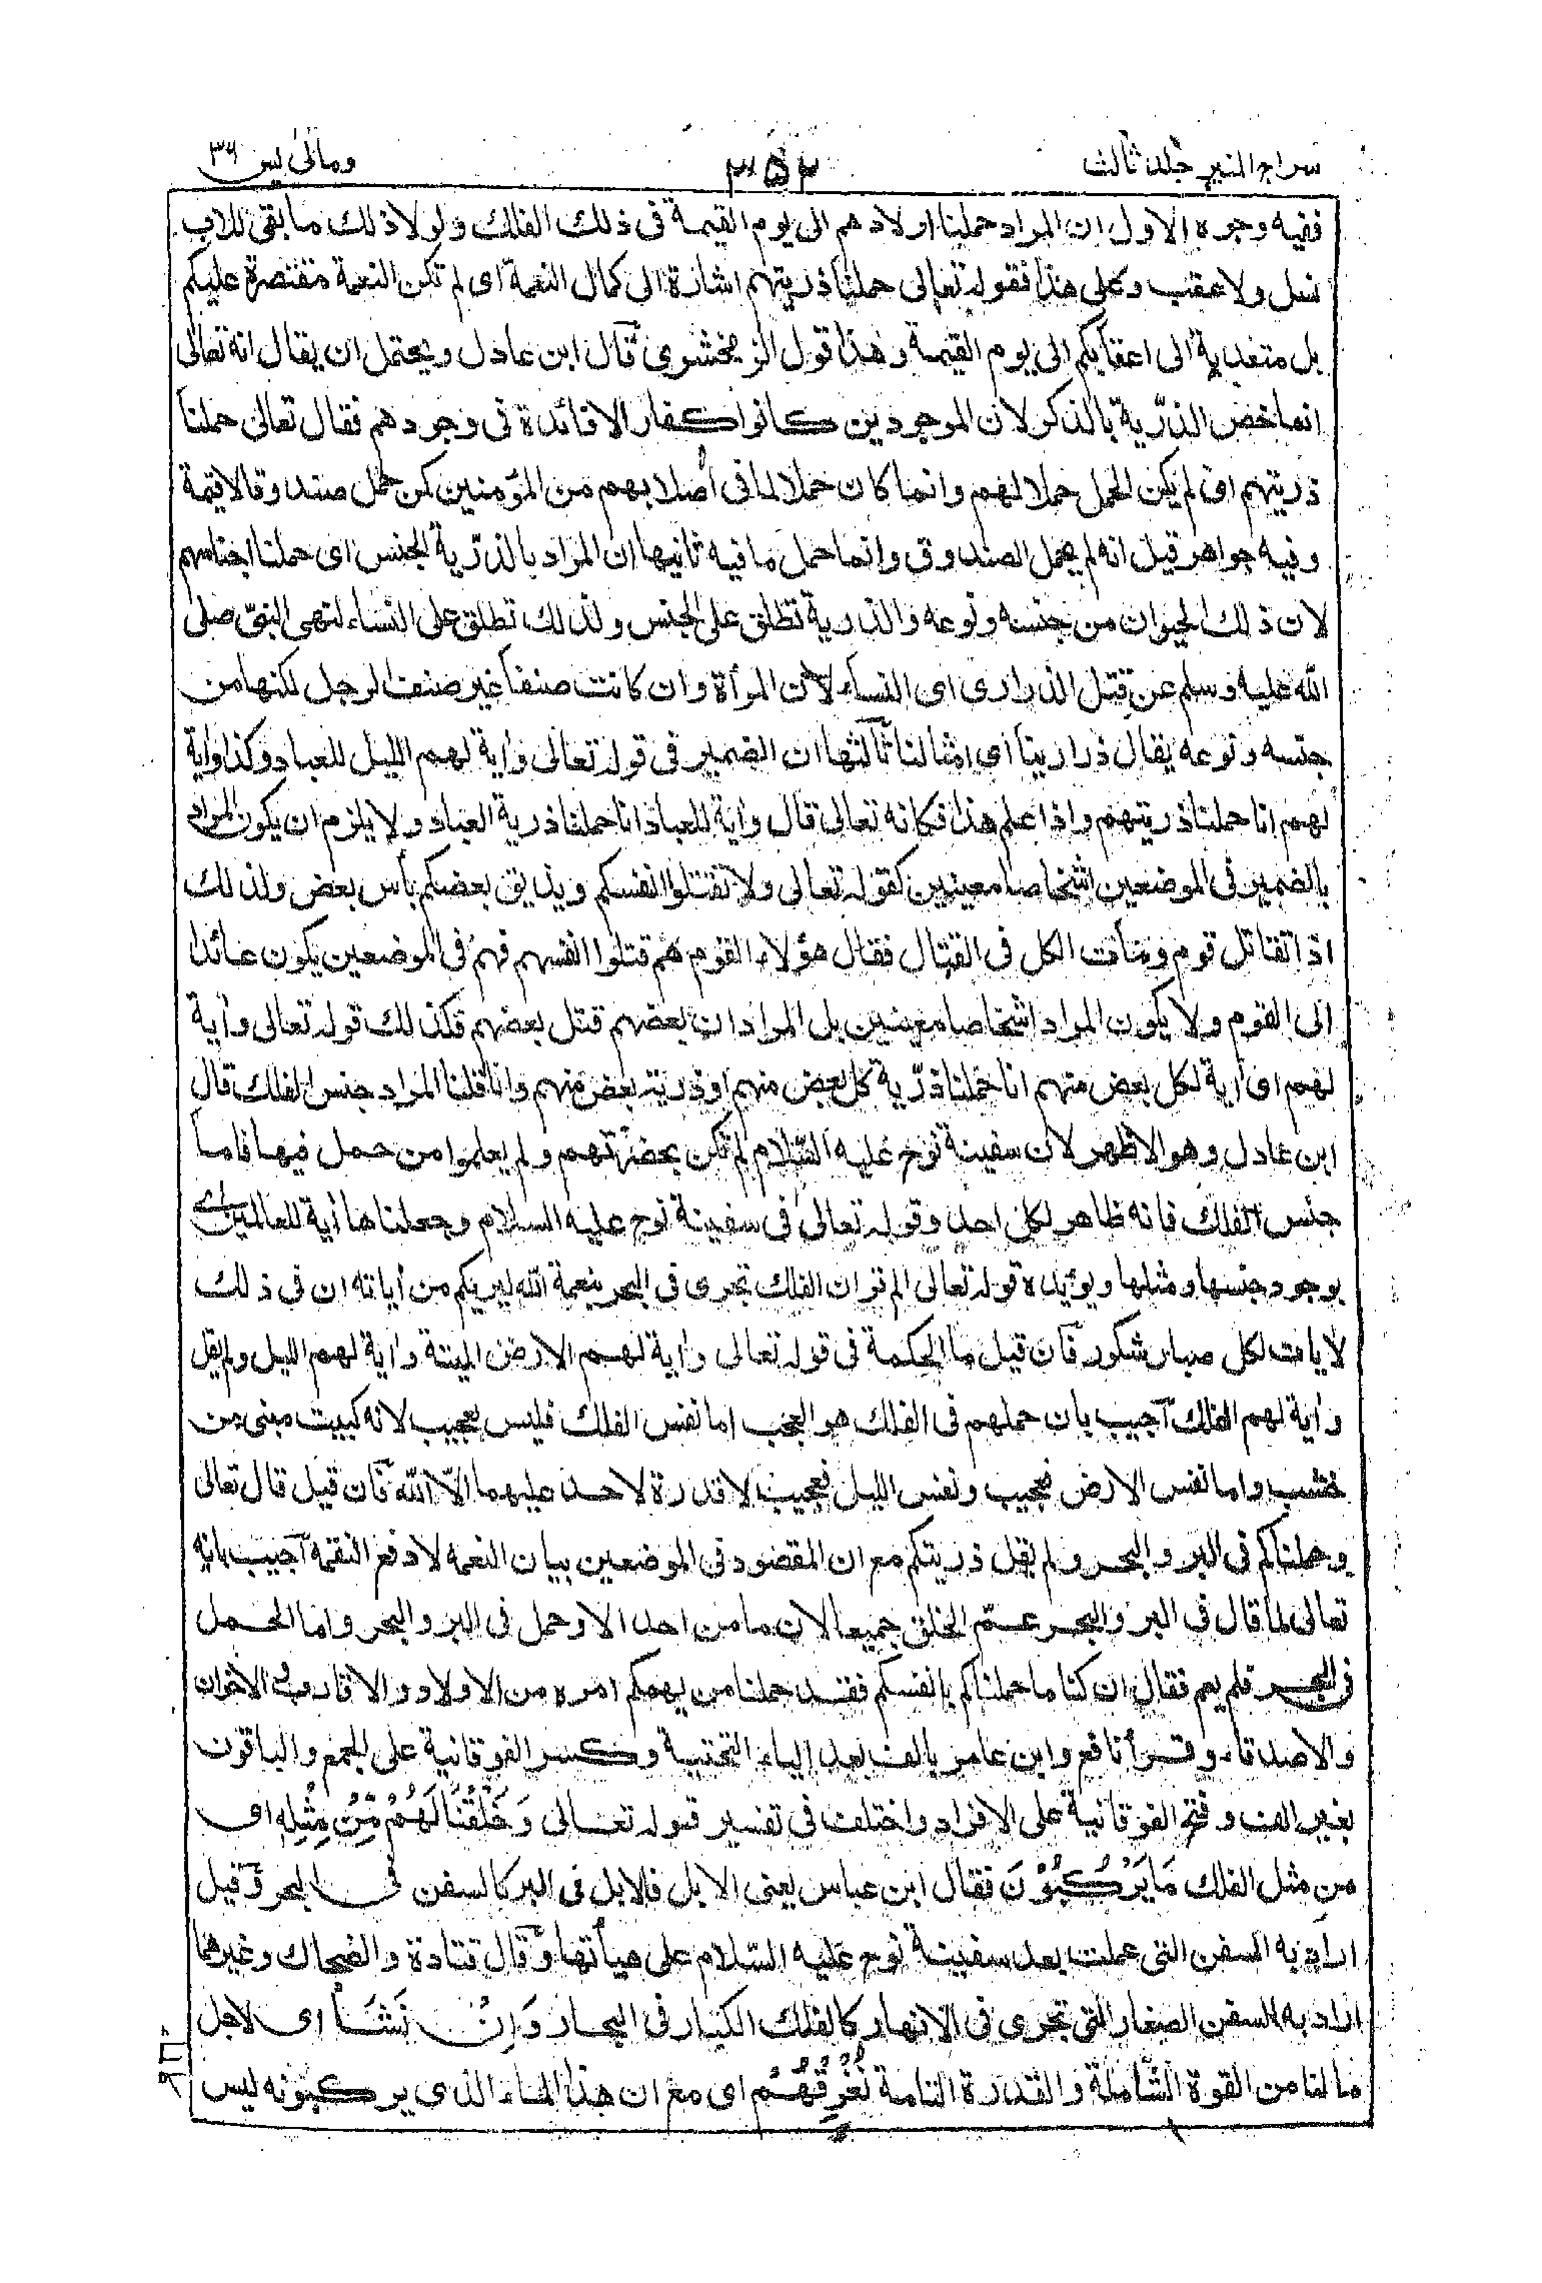 سراج المنير جلد ثالث
٣٥٢
ومالى يس ٣٦
ففيه وجوه الاول ان المراد حملنا اولادهم الى يوم القيمة فى ذلك الفلك ولولا ذلك ما بقى للاب
نسل ولا عقب وعلى هذا فقوله تعالى حملنا ذريتهم اشارة الى كمال النعمة اى لم تكن النعمة مقتصرة عليكم
بل متعدية الى اعقابكم الى يوم القيمة وهذا قول الزمخشرى قال ابن عادل ويحتمل ان يقال انه تعالى
انما خص الذرّية بالذكر لان الموجودين كانوا كفارا لا فائدة فى وجودهم فقال تعالى حملنا
ذريتهم اى لم يكن الحمل حملا لهم وانما كان حملا لما فى أصلابهم من المؤمنين كمن حمل صندوقا لا قيمة
وفيه جواهر قيل انه لم يحمل الصندوق وانما حمل ما فيه ثانيها ان المراد بالذرّية الجنس اى حملنا اجناسهم
لان ذلك الحيوان من جنسه ونوعه والذرية تطلق على الجنس ولذلك تطلق على النساء لنهى النبىّ صلى
الله عليه وسلم عن قتل الذرارى اى النساء لأن المرأة وان كانت صنفا غير صنف الرجل لكنها من
جنسه ونوعه يقال ذرارينا أى امثالنا ثالثها ان الضمير فى قوله تعالى وأية لهم الليل للعباد وكذا وأية
لهم انا حملنا ذريتهم واذا علم هذا فكانه تعالى قال وأية للعباد انا حملنا ذرية العباد ولا يلزم ان يكون المراد
بالضمير فى الموضعين اشخاصا معينين كقوله تعالى ولا تقتلوا انفسكم ويذيق بعضكم بأس بعض ولذلك
اذا تقاتل قوم ومات الكل فى القتال فقال هؤلاء القوم هم قتلوا انفسهم فهم فى الموضعين يكون عائدا
الى القوم ولا يكون المراد اشخاصا معينين بل المراد ان بعضهم قتل بعضهم فكذلك قوله تعالى وأية
لهم اى أية لكل بعض منهم انا حملنا ذرّية كل بعض منهم او ذرية بعض منهم وان قلنا المراد جنس الفلك قال
ابن عادل وهو الاظهر لان سفينة نوح عليه السّلام لم تكن بحضرتهم ولم يعلموا من حمل فيها فاما
جنس الفلك فانه ظاهر لكل احد وقوله تعالى فى سفينة نوح عليه السلام وجعلناها أية للعالمين اى
بوجود جنسها ومثلها ويؤيده قوله تعالى الم تر ان الفلك تجرى فى البحر بنعمة الله ليريكم من أياته ان فى ذلك
لايات لكل صبار شكور فان قيل ما الحكمة فى قوله تعالى وأية لهم الارض الميتة وأية لهم الليل ولم يقل
وأية لهم الفلك اجيب بان حملهم فى الفلك هو العجب اما نفس الفلك فليس بعجيب لانه كبيت مبنى من
خشب واما نفس الارض فعجيب ونفس الليل فعجيب لا قدرة لاحد عليهما الّا الله فان قيل قال تعالى
وحملناكم فى البر والبحر ولم يقل ذريتكم مع ان المقصود فى الموضعين بيان النعمه لا دفع النقمه اجيب بانه
تعالى لما قال فى البر والبحر عمّ الخلق جميعا لان ما من احد الا وحمل فى البر والبحر واما الحمل
فى البحر فلم يعم فقال ان كنا ما حملناكم بانفسكم فقد حملنا من يهمكم امره من الاولاد والاقارب والاخوان
والاصدقاء وقرأ نافع وابن عامر بالف بعد الياء التحتية وكسر الفوقانية على الجمع والباقون
بغير الف وفتح الفوقانية على الافراد واختلف فى تفسير قوله تعالى وَخَلَقْنَا لَهُمْ مِّنْ مِّثْلِهٖ اى
من مثل الفلك مَا يَرْكَبُوْنَ فقال ابن عباس يعنى الابل فالابل فى البر كالسفن فى البحر وقيل
اراد به السفن التى عملت بعد سفينة نوح عليه السّلام على هيأتها وقال قتادة والضحاك وغيرهما
اراد به السفن الصغار التى تجرى فى الانهار كالفلك الكبار فى البحار وَاِنْ نَشَأْ اى لاجل
ما لنا من القوة الشاملة والقدرة التامة نُغْرِقْهُمْ اى مع ان هذا الماء الذى يركبونه ليس